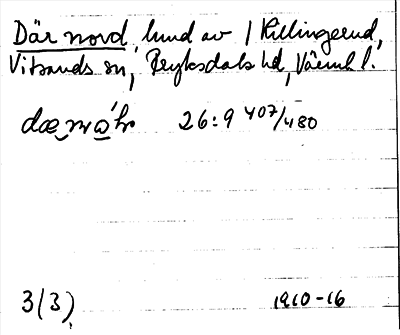 Där nord, lund av / Killingerud,
Vitsands sn, Fryksdals hd, Värml l.
26:9 407/480
3(3) 1910-16